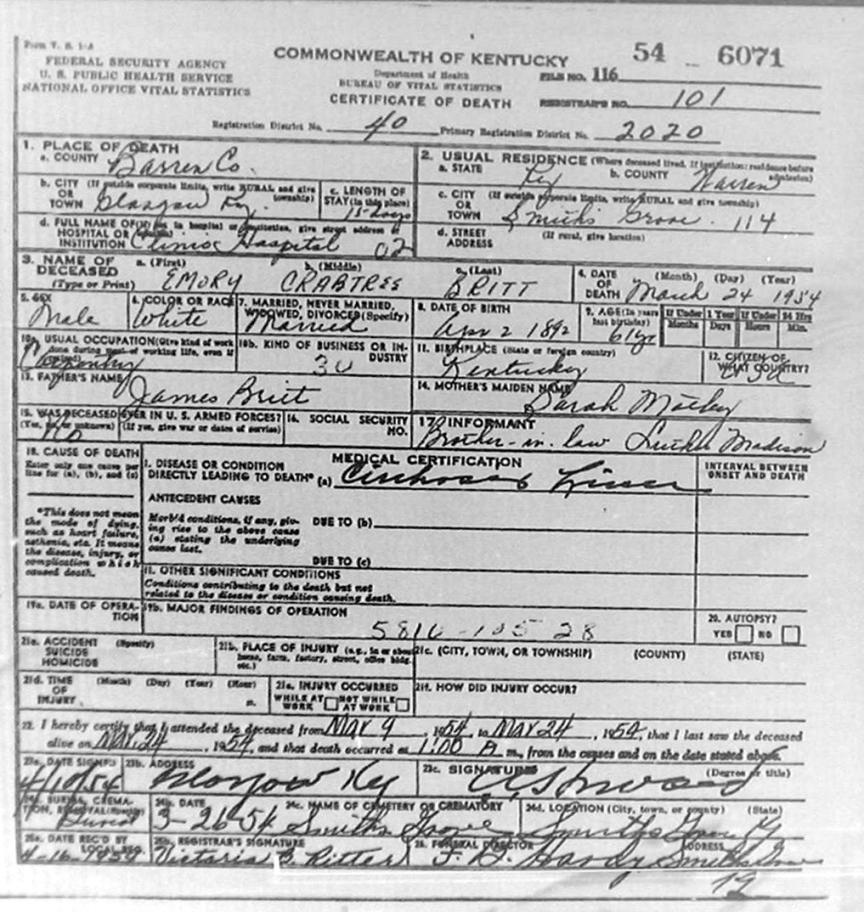 Form V. S. 1-A
FEDERAL SECURITY AGENCY
U. S. PUBLIC HEALTH SERVICE
NATIONAL OFFICE VITAL STATISTICS
COMMONWEALTH OF KENTUCKY
Department of Health
BUREAU OF VITAL STATISTICS
CERTIFICATE OF DEATH
54 - 6071
FILE NO. 116
REGISTRAR'S NO. 101
Registration District No. 40 Primary Registration District No. 2020
1. PLACE OF DEATH
a. COUNTY Barren Co.
b. CITY (If outside corporate limits, write RURAL and give township) OR TOWN Glasgow Ky.
c. LENGTH OF STAY (in this place) 15-Days
d. FULL NAME OF (If not in hospital or institution, give street address or location) HOSPITAL OR INSTITUTION Clinic Hospital 02
2. USUAL RESIDENCE (Where deceased lived. If institution: residence before admission)
a. STATE Ky b. COUNTY Warren
c. CITY (If outside corporate limits, write RURAL and give township) OR TOWN Smiths Grove 114
d. STREET ADDRESS (If rural, give location)
3. NAME OF DECEASED (Type or Print) a. (First) EMORY b. (Middle) CRABTREE c. (Last) BRITT
4. DATE OF DEATH (Month) (Day) (Year) March 24 1954
5. SEX Male
6. COLOR OR RACE White
7. MARRIED, NEVER MARRIED, WIDOWED, DIVORCED (Specify) Married
8. DATE OF BIRTH Apr 2 1892
9. AGE (In years last birthday) 61 yr
If Under 1 Year Months Days
If Under 24 Hrs Hours Min.
10a. USUAL OCCUPATION (Give kind of work done during most of working life, even if retired) Carpentry
10b. KIND OF BUSINESS OR INDUSTRY 30
11. BIRTHPLACE (State or foreign country) Kentucky
12. CITIZEN OF WHAT COUNTRY? USA
13. FATHER'S NAME James Britt
14. MOTHER'S MAIDEN NAME Sarah
15. WAS DECEASED EVER IN U. S. ARMED FORCES? (Yes, no, or unknown) (If yes, give war or dates of service) No
16. SOCIAL SECURITY NO.
17. INFORMANT Brother-in-law Luther Madison
18. CAUSE OF DEATH
Enter only one cause per line for (a), (b), and (c)
*This does not mean the mode of dying, such as heart failure, asthenia, etc. It means the disease, injury, or complication which caused death.
MEDICAL CERTIFICATION
I. DISEASE OR CONDITION DIRECTLY LEADING TO DEATH* (a) Cirrhosis Liver
ANTECEDENT CAUSES
Morbid conditions, if any, giving rise to the above cause (a) stating the underlying cause last.
DUE TO (b)
DUE TO (c)
II. OTHER SIGNIFICANT CONDITIONS
Conditions contributing to the death but not related to the disease or condition causing death.
INTERVAL BETWEEN ONSET AND DEATH
19a. DATE OF OPERATION
19b. MAJOR FINDINGS OF OPERATION
5810-105-28
20. AUTOPSY? YES NO
21a. ACCIDENT SUICIDE HOMICIDE (Specify)
21b. PLACE OF INJURY (e.g., in or about home, farm, factory, street, office bldg. etc.)
21c. (CITY, TOWN, OR TOWNSHIP) (COUNTY) (STATE)
21d. TIME OF INJURY (Month) (Day) (Year) (Hour) m.
21e. INJURY OCCURRED WHILE AT WORK NOT WHILE AT WORK
21f. HOW DID INJURY OCCUR?
22. I hereby certify that I attended the deceased from Mar 9, 1954, to Mar 24, 1954, that I last saw the deceased
alive on Mar. 24, 1954, and that death occurred at 1:00 m., from the causes and on the date stated above.
23a. DATE SIGNED 4/10/54
23b. ADDRESS Glasgow Ky
23c. SIGNATURE (Degree or title)
24a. BURIAL, CREMATION, REMOVAL (Specify) Burial
24b. DATE 3-26-54
24c. NAME OF CEMETERY OR CREMATORY Smiths Grove
24d. LOCATION (City, town, or county) (State) Smiths Grove Ky
25a. DATE REC'D BY LOCAL REG. 4-16-1954
25b. REGISTRAR'S SIGNATURE Victoria B. Ritter
26. FUNERAL DIRECTOR ADDRESS Hardy Smiths Grove